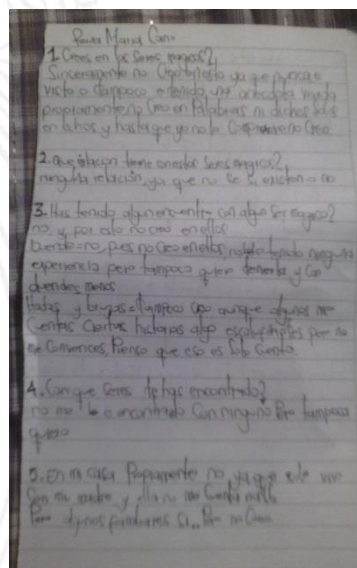 Paula Maria Cano
1. Crees en los Seres magicos?
Sinceramente no Creo en esto ya que nunca e
visto o tampoco e tenido una anecdota vivida
propiamente no Creo en Palabras ni dichos solo
en echos y hasta que yo no lo Compruebe no Creo.
2. que relacion tiene con estos Seres magicos?
ninguna relación, ya que no se si existen o no
3. Has tenido algun encuentro con algun Ser magico?
no, y por esto no creo en ellos
Duende = no, pues no Creo en ellos, no he tenido ninguna
experiencia pero tampoco quiero tenerla y con
duendes menos
Hadas y brujas = tampoco Creo aunque algunos me
Cuentan Ciertas historias algo escalofriantes pero no
me Convencen, Pienso que eso es Solo Cuento.
4. Con que Seres te has encontrado?
no me he encontrado Con ninguno Pero tampoco
quiero
5. En mi casa Propiamente no, ya que solo vive
Con mi madre y ella no me Cuenta nada
Pero algunos familiares Si.. Pero no Creo.